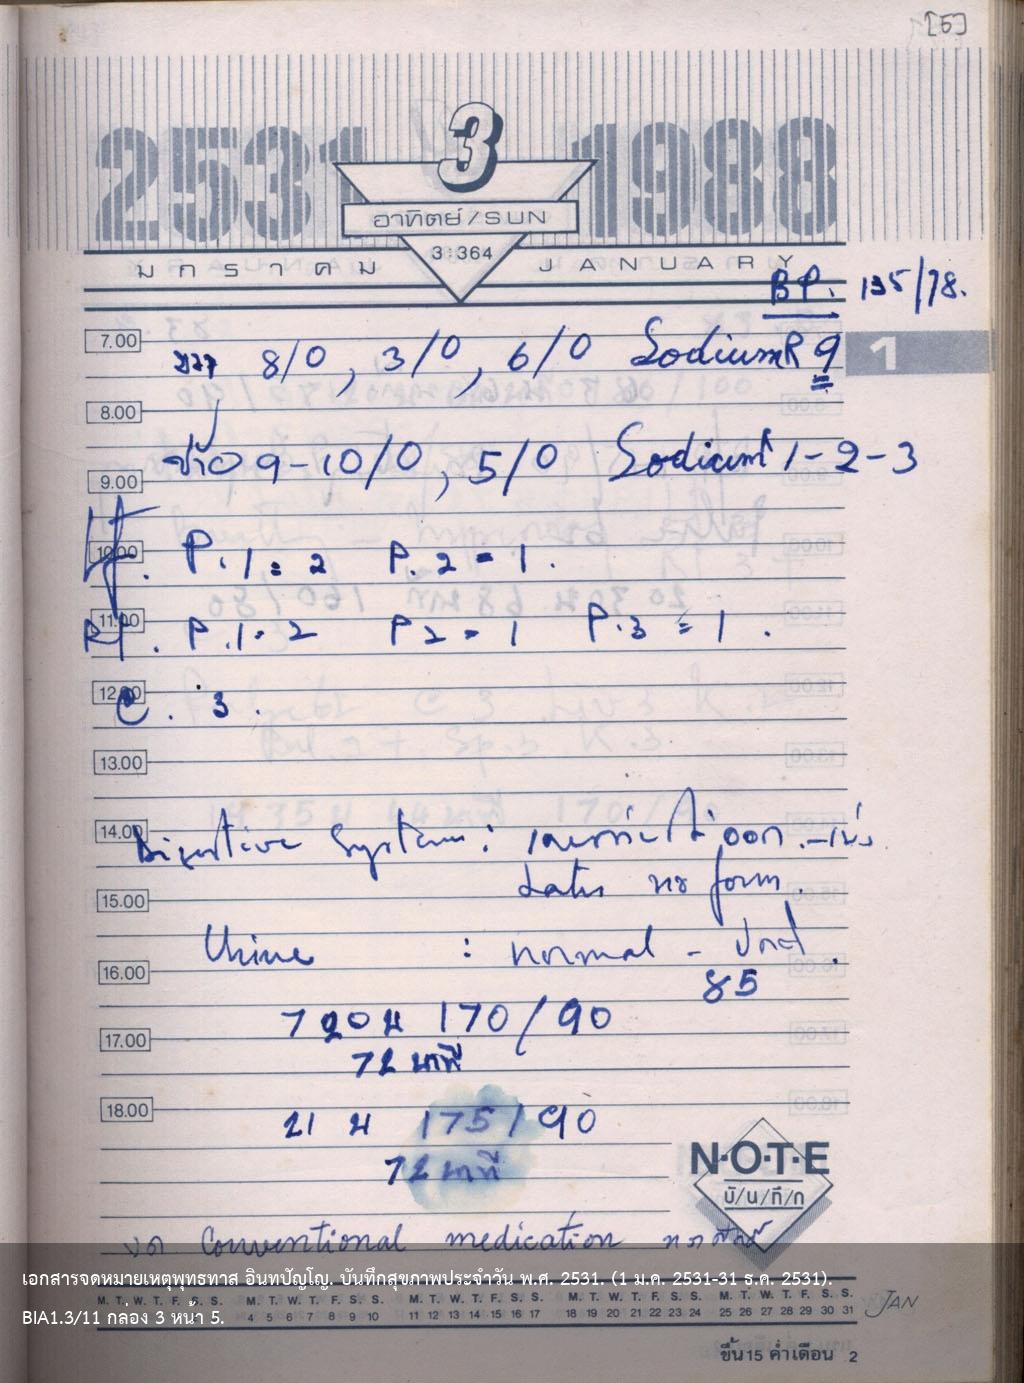 [5]
2531 3 1988
อาทิตย์/SUN
3:364
มกราคม JANUARY
BP. 135/78.
1
7.00
ขวา 8/0, 3/0, 6/0 Sodium R 9
8.00
ซ้าย 9-10/0, 5/0 Sodium 1-2-3
9.00
Lf. P.1=2 P.2=1.
10.00
Rt. P.1=2 P2=1 P.3=1.
11.00
C. 3.
12.00
13.00
14.00
Digestive System: ไม่ออก
form.
15.00
Urine : normal - ปกติ.
16.00
85
7 20 น 170/90
17.00
72 นาที
18.00
21 น 175/90
72 นาที
N·O·T·E
บั/น/ทึ/ก
งด Conventional medication
เอกสารจดหมายเหตุพุทธทาส อินทปัญโญ. บันทึกสุขภาพประจำวัน พ.ศ. 2531. (1 ม.ค. 2531-31 ธ.ค. 2531).
M. T. W. T. F. S. S. M. T. W. T. F. S. S. M. T. W. T. F. S. S. M. T. W. T. F. S. S. M. T. W. T. F. S. S.
1 2 3 4 5 6 7 8 9 10 11 12 13 14 15 16 17 18 19 20 21 22 23 24 25 26 27 28 29 30 31 JAN
BIA1.3/11 กล่อง 3 หน้า 5.
ขึ้น 15 ค่ำ เดือน 2